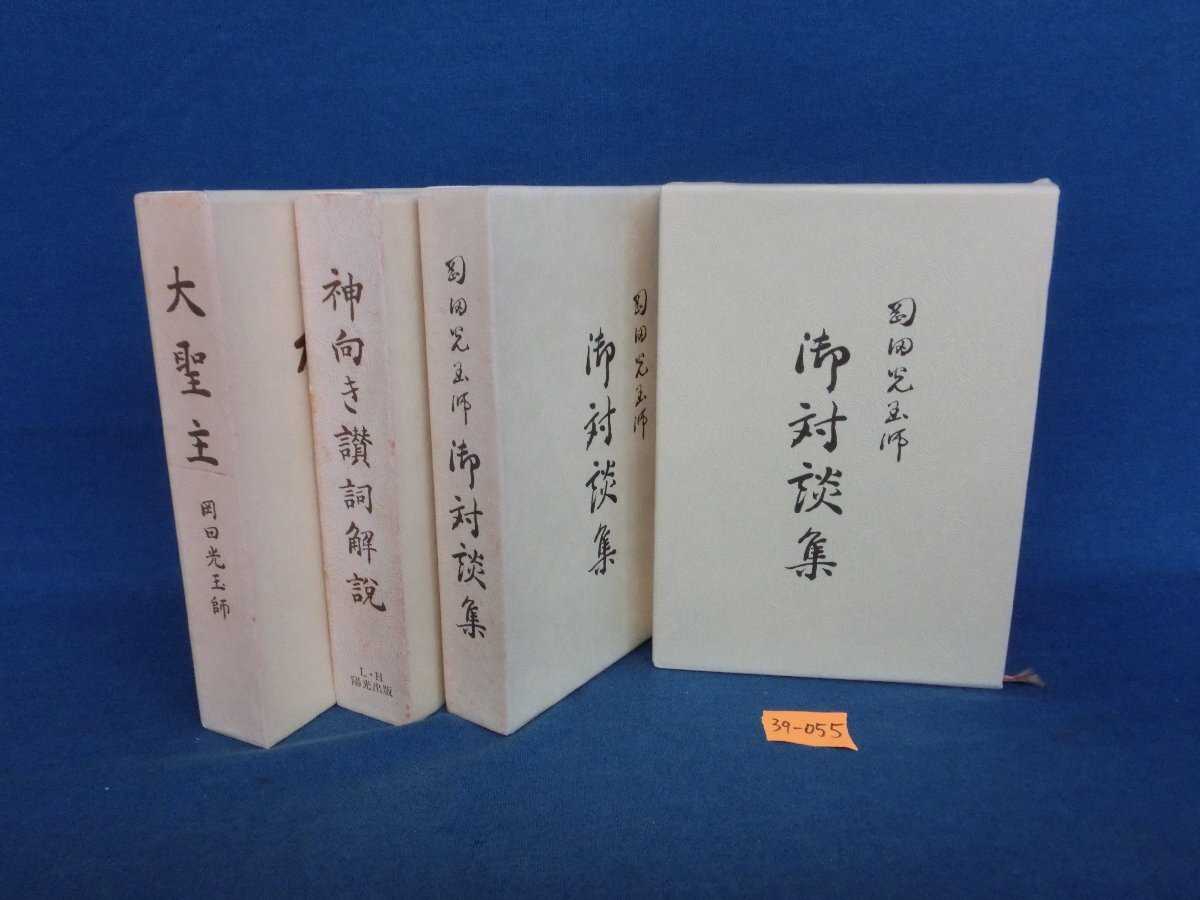 大聖主
岡田光玉師
神向き讃詞解説
L・H
陽光出版
岡田光玉師
御対談集
岡田光玉師
御対談集
岡田光玉師
御対談集
39-055